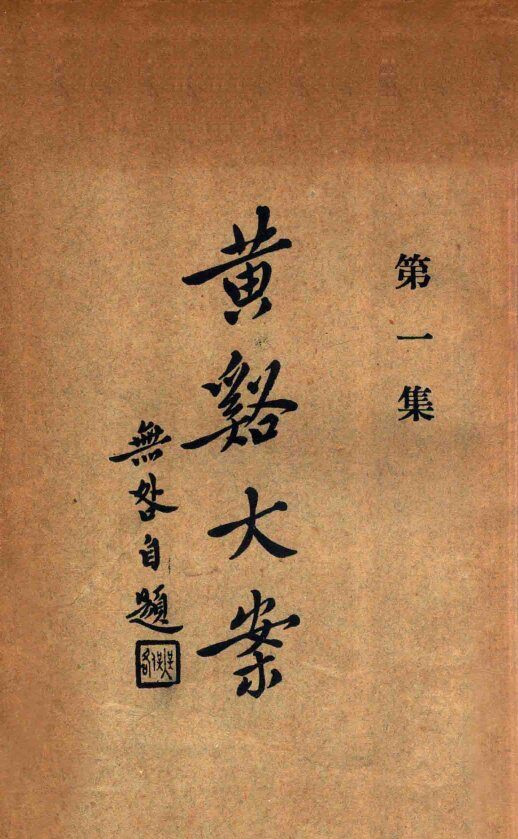 第一集
黄谿大案
無咎自題